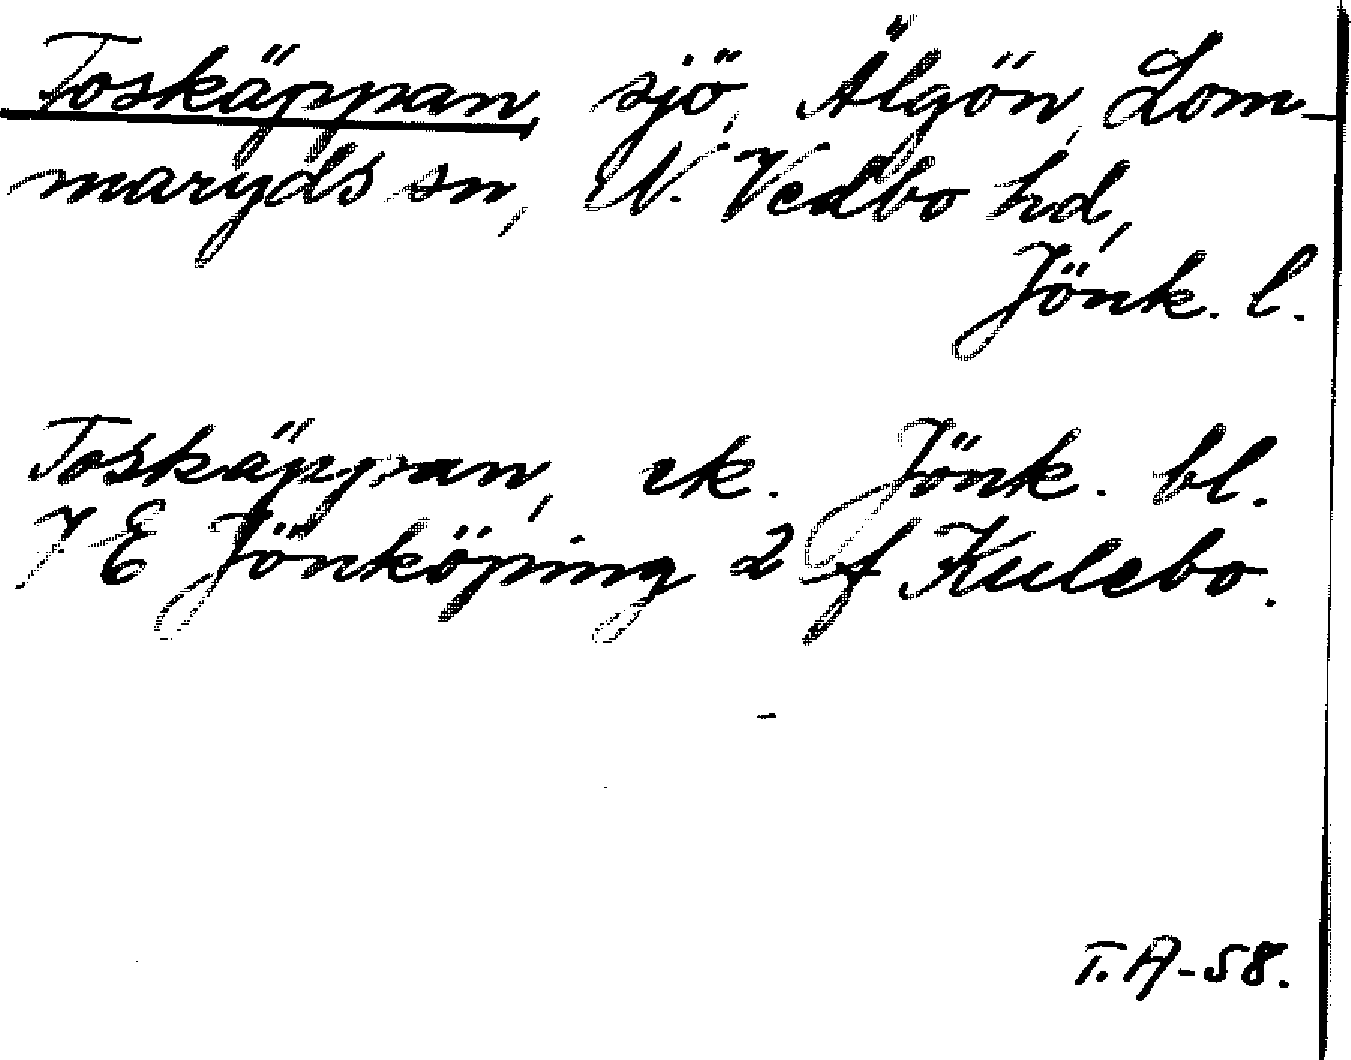 Toskäppan, sjö, Älgön, Lom-
maryds sn, N. Vedbo hd,
Jönk. l.
Toskäppan, ek. Jönk. bl.
7 E Jönköping 2 f Kulebo.
T. A-58.